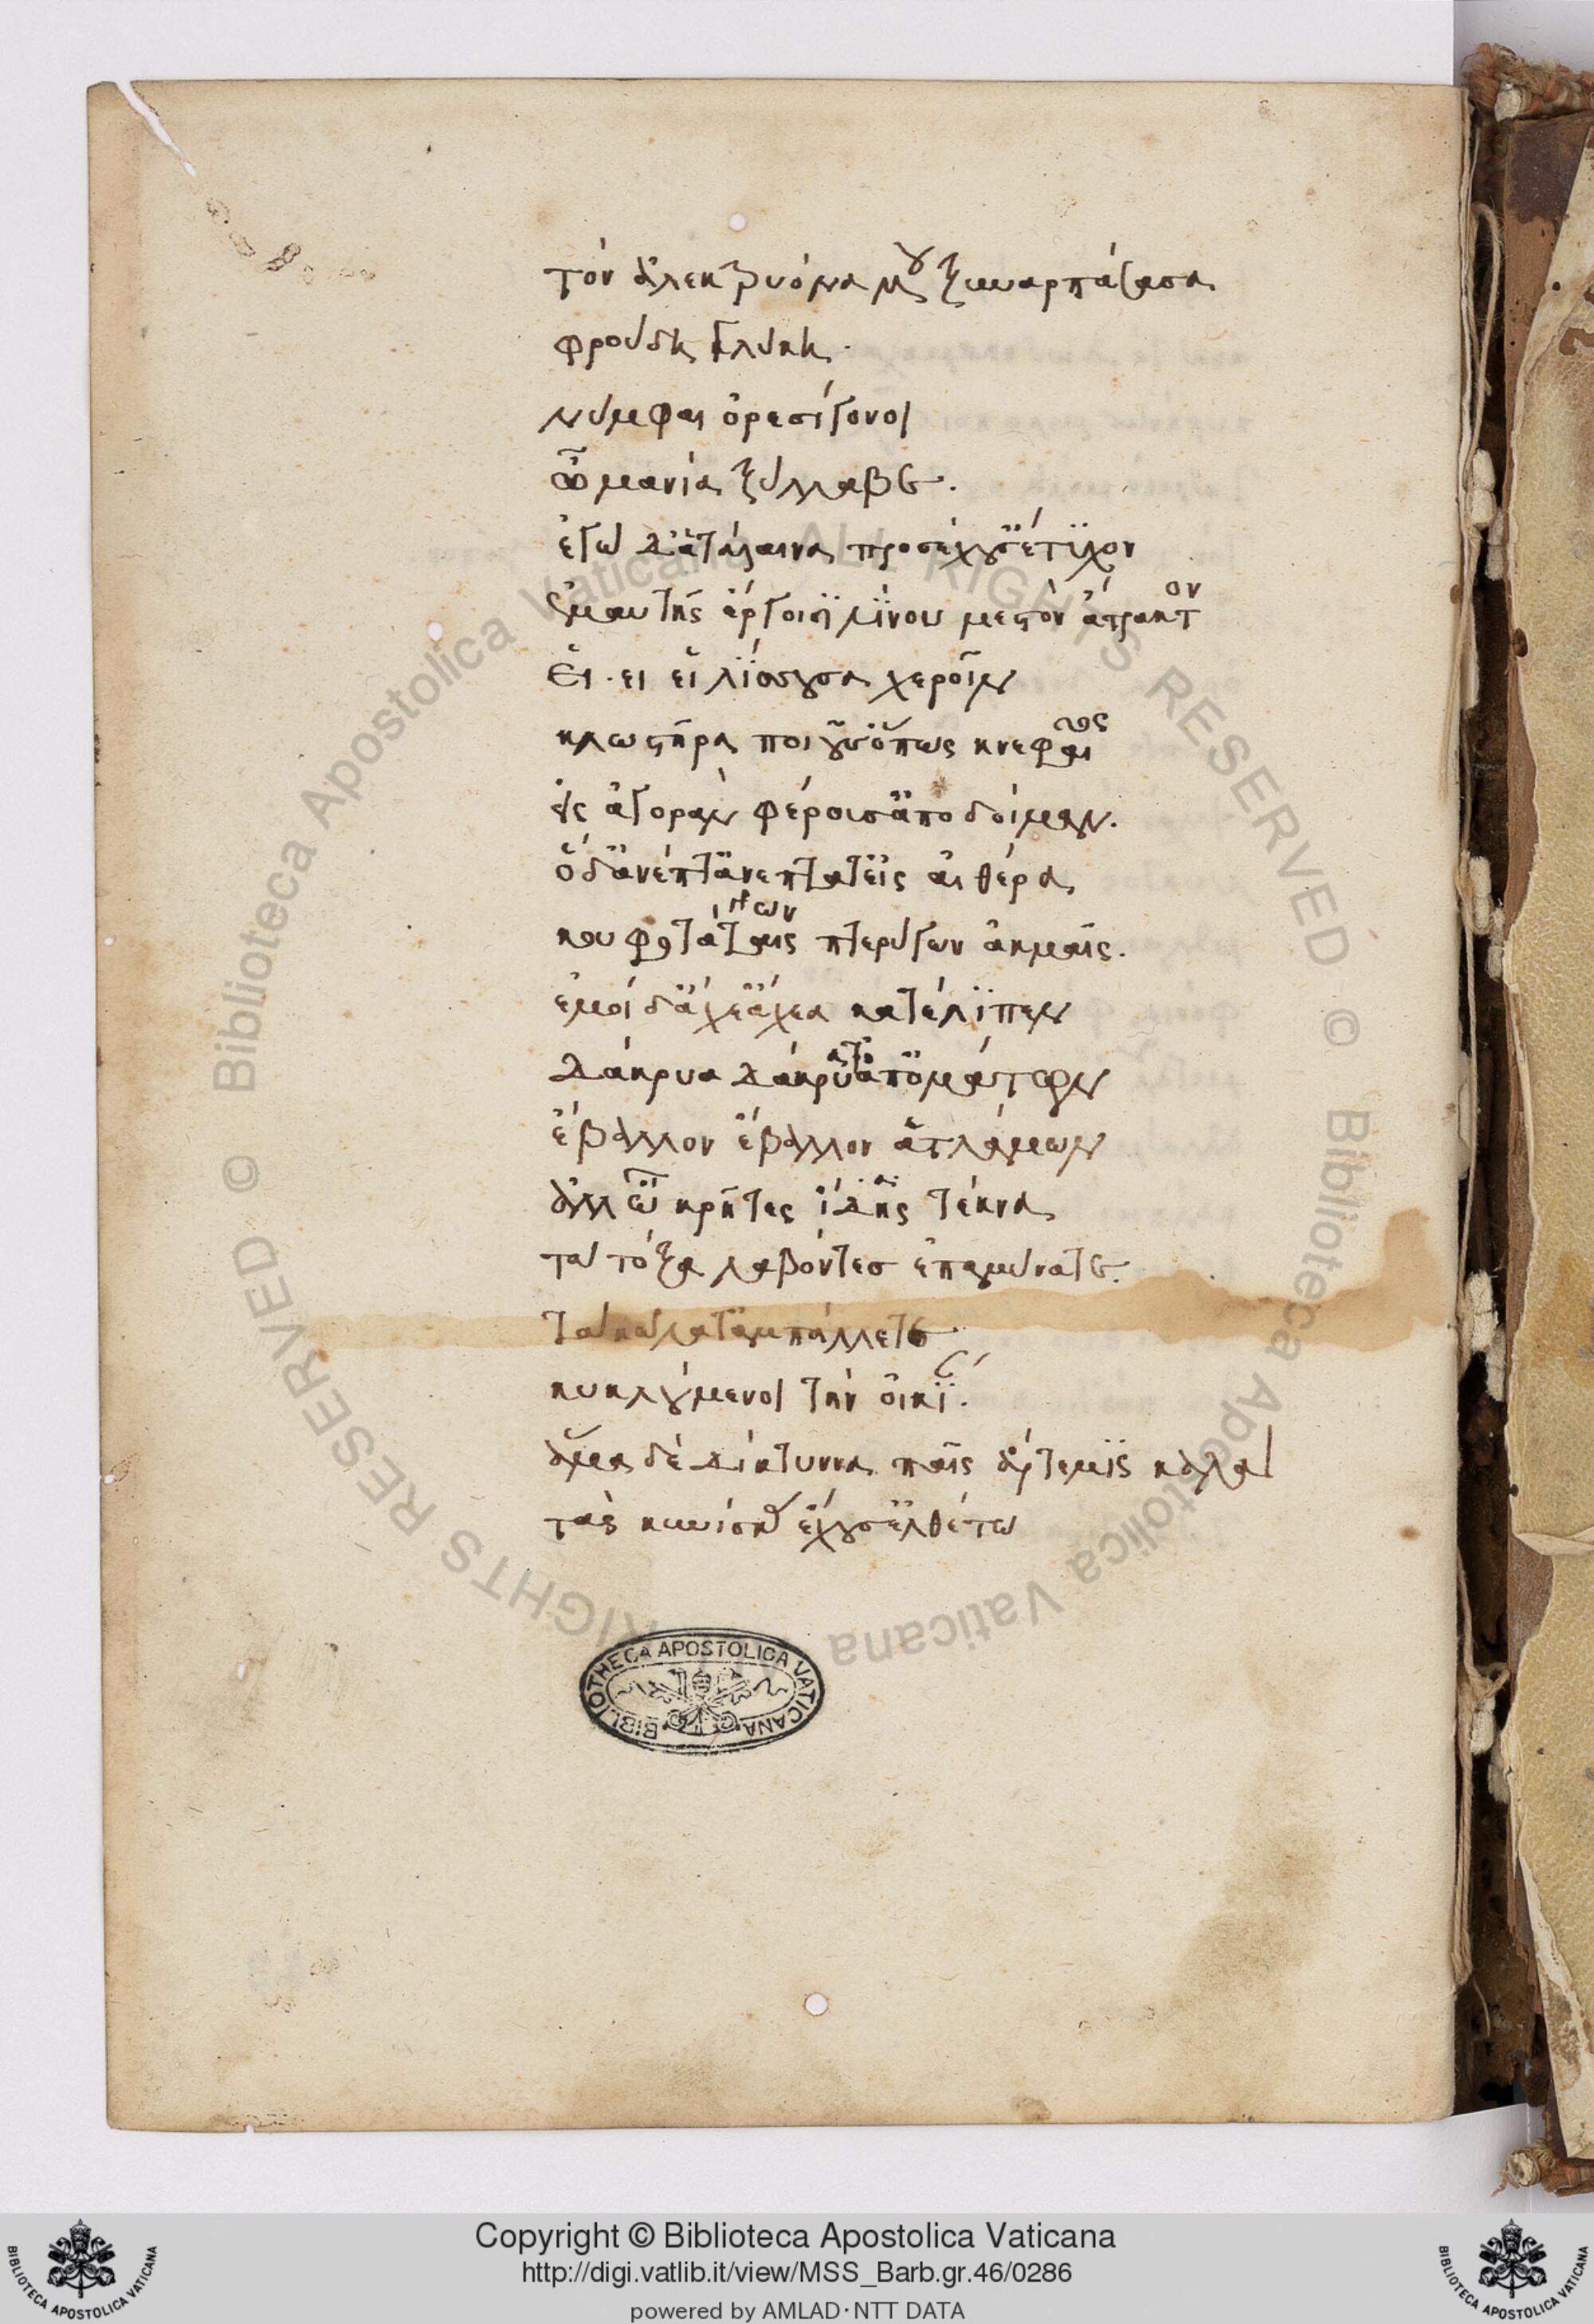 τὸν ἀλεκτρυόνα μου ξυναρπάσασα
φρούδη γλύκη.
νύμφαι ὀρεσίγονοι
ὦ μανία ξύλλαβε.
ἐγὼ δ' ἁ τάλαινα προσέχουσ' ἔτυχον
ἐμαυτῆς ἔργοισι λίνου μεστὸν ἄτρακτον
εἰ. ει ειλίσσουσα χεροῖν
κλωστῆρα ποιοῦσ' ὅπως κνεφαῖος
εἰς ἀγορὰν φέρουσ' ἀποδοίμαν.
ὁ δ' ἀνέπτατ' ἀνέπτατ' εἰς αἰθέρα
κουφοτάταις πτερύγων ἀκμαῖς.
ἐμοὶ δ' ἄχε' ἄχεα κατέλιπεν
δάκρυα δάκρυά τ' ἀπ' ὀμμάτων
ἔβαλλον ἔβαλλον ἁ τλάμων
ἀλλ' ὦ κρῆτες ἴδης τέκνα
τὰ τόξα λαβόντες ἐπαμύνατε.
τὰ κῶλά τ' ἀμπάλλετε
κυκλούμενοι τὴν οἰκίαν.
ἅμα δὲ δίκτυννα παῖς ἄρτεμις καλὰ
τὰς κυνίσκας ἔχουσ' ἐλθέτω
BIBLIOTHECA APOSTOLICA VATICANA
© Biblioteca Apostolica Vaticana ALL RIGHTS RESERVED
© Biblioteca Apostolica Vaticana ALL RIGHTS RESERVED
Copyright © Biblioteca Apostolica Vaticana
http://digi.vatlib.it/view/MSS_Barb.gr.46/0286
powered by AMLAD·NTT DATA
BIBLIOTECA APOSTOLICA VATICANA
BIBLIOTECA APOSTOLICA VATICANA